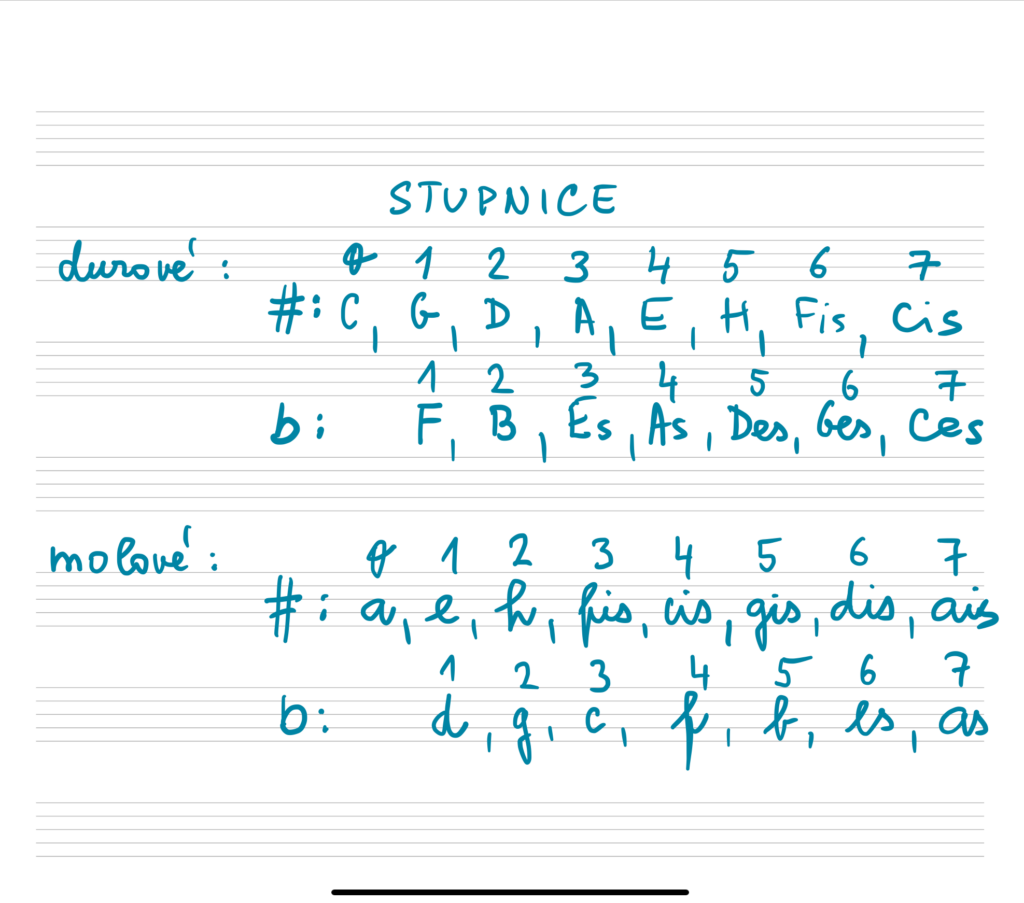 STUPNICE
durové: 0 1 2 3 4 5 6 7
#: C, G, D, A, E, H, Fis, Cis
1 2 3 4 5 6 7
b: F, B, Es, As, Des, Ges, Ces
molové: 0 1 2 3 4 5 6 7
#: a, e, h, fis, cis, gis, dis, ais
1 2 3 4 5 6 7
b: d, g, c, f, b, es, as